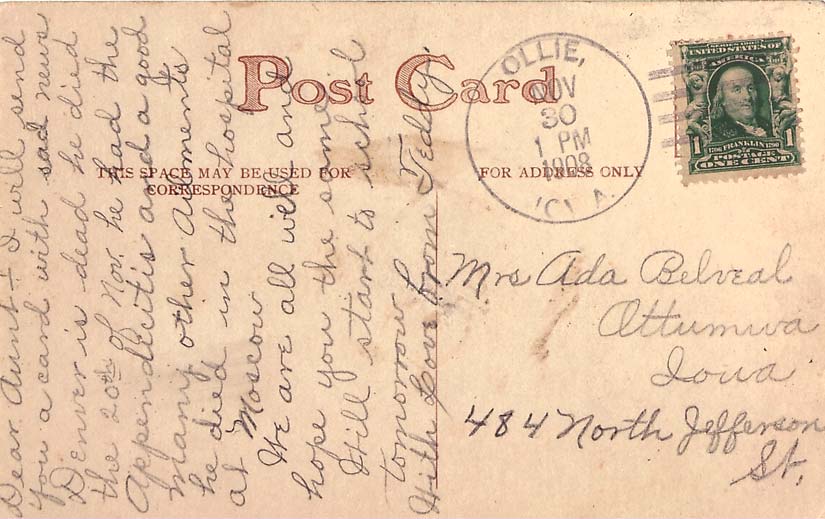 Post Card
THIS SPACE MAY BE USED FOR
CORRESPONDENCE
FOR ADDRESS ONLY
OLLIE,
NOV
30
1 PM
1908
IOWA
SERIES 1902
UNITED STATES OF
AMERICA
1 1
1706 FRANKLIN 1790
POSTAGE
ONE CENT
Dear Aunt - I will send
you a card with sad news
Denver is dead he died
the 20th of Nov. he had the
Appendicitis and a good
many other ailments
he died in the hospital
at Moscow
We are all well and
hope you the same
Will start to school
tomorrow
With Love from Teddy.
Mrs Ada Belveal
Ottumwa
Iowa
484 North Jefferson
St.